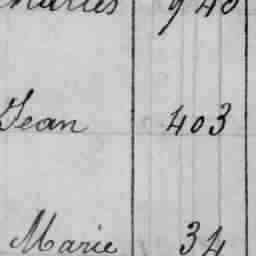 Charles 940
Jean 403
Marie 34